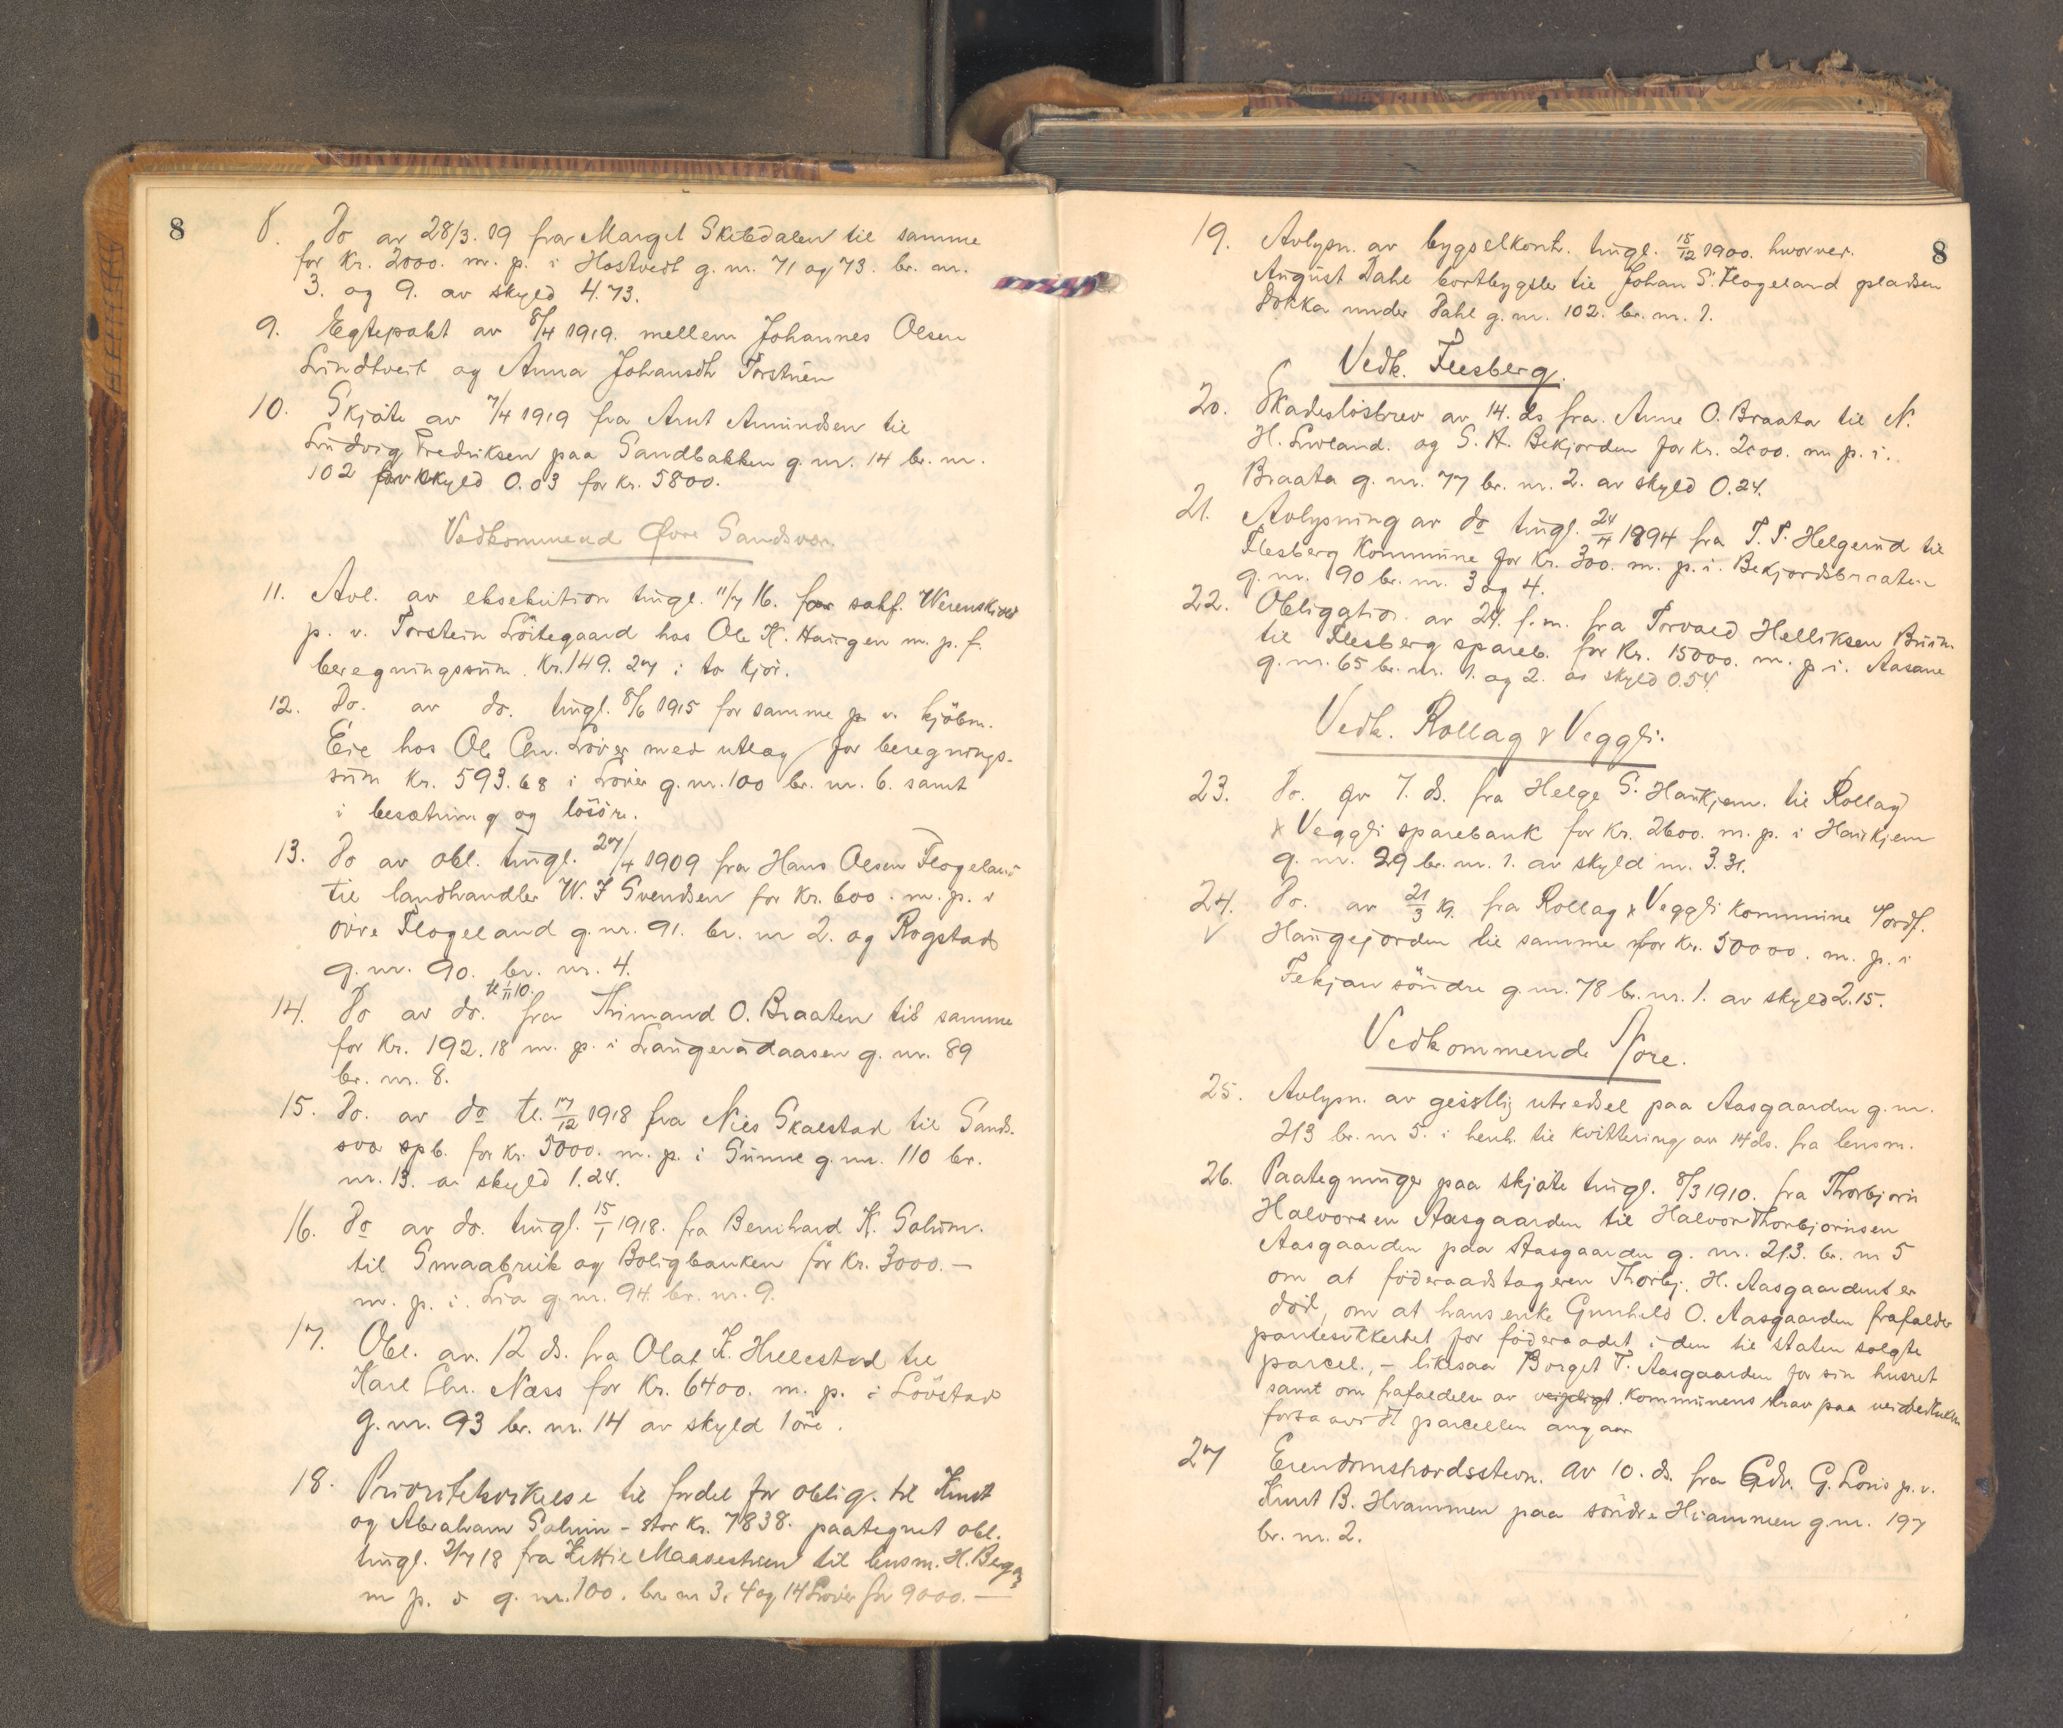 8
8. Do av 28/3. 19 fra Margit Skibdalen til samme
for Kr. 2000. m. p. i Hostvedt g. nr. 71 og 73. br. nr.
3. og 9. av skyld 4.73.
9. Egtepakt av 8/4 1919. mellem Johannes Olsen
Lindtveit og Anna Johansdtr
10. Skjöte av 7/4 1919 fra Arnt Amundsen til
Ludvig Fredriksen paa Sandbakken g. nr. 14 br. nr.
102 av skyld 0.03 for Kr. 5800.
Vedkommend Øvre Sandsvær.
11. Avl. av eksekution tingl. 11/7 16. for sakf. Werenskiold
p. v. Torstein Löitegaard hos Ole K. Haugen m. p. f.
beregningssum. Kr. 149. 27 i to kjör.
12. Do. av do. tingl. 8/6 1915 for samme p. v. kjöbm.
Eie hos Ole Chr. Löver med utlæg for beregnings-
sum Kr. 593.68 i Löver g. nr. 100 br. nr. 6. samt
i besætning og lösöre.
13. Do av obl. tingl. 27/4 1909 fra Hans Olsen Flogeland
til landhandler W. J Svendsen for Kr. 600. m. p. i
övre Flogeland g. nr. 91. br. nr 2. og Rogstad
g. nr. 90. br. nr. 4.
14. Do av do. tl 1/11 10. fra Thimand O. Braaten til samme
for Kr. 192.18 m. p. i Langerudaasen g. nr. 89
br. nr. 8.
15. Do. av do tl. 17/12 1918 fra Nils Skalstad til Sands-
svær spb. for Kr. 5000. m. p. i Sunne g. nr. 110 br.
nr. 13. av skyld 1.24.
16. Do av do. tingl. 15/1 1918. fra Bernhard K. Solum.
til Smaabruk og Boligbanken for Kr. 3000.—
m. p. i. Lia g. nr. 94. br. nr. 9.
17. Obl. av. 12 ds. fra Olaf K. Hellestad til
Karl Chr. Næss for Kr. 6400. m. p. i Lövstad
g. nr. 93 br. nr. 14 av skyld 1 öre.
18. Prioritetsvikelse til fordel for oblig. til Knut
og Abraham Solum - stor Kr. 7838. paategnet obl.
tingl. 2/7 18 fra Kittil Maavestuen til lensm. H. Berg
m p. i g. nr. 100. br. nr 3, 4 og 14 Löver for 9000.—
8
19. Avlysn. av bygselkontr. tingl. 15/12 1900. hvorved.
August Dahl bortbygsler til Johan S. Flogeland pladsen
Dokka under Dahl g. nr. 102. br. nr. 1.
Vedk. Flesberg.
20. Skadeslösbrev av 14. ds fra. Anne O. Braata til N.
H. Lurland. og S. A. Bekjorden for Kr. 2000. m. p. i..
Braata g. nr. 77 br. nr. 2. av skyld 0.24.
21. Avlysning av do tingl. 24/4 1894 fra T. T. Helgerud til
Flesberg Kommune for Kr. 300. m. p. i. Bekjordsbraaten
g. nr. 90 br. nr. 3 og 4.
22. Obligation. av 24. f. m. fra Torvald Helliksen Bruun
til Flesberg spareb. for Kr. 15000. m. p. i. Aasane
g. nr. 65 br. nr. 1. og 2. av skyld 0.54.
Vedk. Rollag & Veggli.
23. Do. av 7. ds. fra Helge S. Haukjem. til Rollag
& Veggli sparebank for Kr. 2600. m. p. i Haukjem
g. nr. 29 br. nr. 1. av skyld m. 3.31.
24. Do. av 21/3 19. fra Rollag & Veggli Kommune v/ordf.
✓ Haugejorden til samme for Kr. 50000. m. p. i
Fekjan söndre g. nr. 78 br. nr. 1. av skyld 2.15.
Vedkommende Nore.
25. Avlysn. av geistlig utredsel paa Aasgaarden g. nr.
213 br. nr 5. i henh. til kvittering av 14 ds. fra lensm.
26. Paategninger paa skjöte tingl. 8/3 1910. fra Thorbjörn
Halvorsen Aasgaarden til Halvor Thorbjörnsen
Aasgaarden paa Aasgaarden g. nr. 213. br. nr 5
om at föderaadstageren Thorbj. H. Aasgaarden er
död, om at hans enke Gunhild O. Aasgaarden frafalder
pantesikkerhet for föderaadet i den til staten solgte
parcel, - likesaa Borget T. Aasgaarden for sin husret
samt om frafaldelse av veipligt. Kommunens krav paa
forsaavidt parcellen angaar
27 Eiendomshordsstevn. av 10. ds. fra Gdr. G. Loris p. v.
Knut B. Hvammen paa söndre Hvammen g. nr. 197
br. nr. 2.